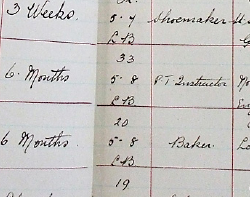 3 Weeks.
5-7 Shoemaker
C of B
33
6 Months 5-8 P.T. Instructor
C of B
20
6 Months 5-8 Baker.
C of B
19